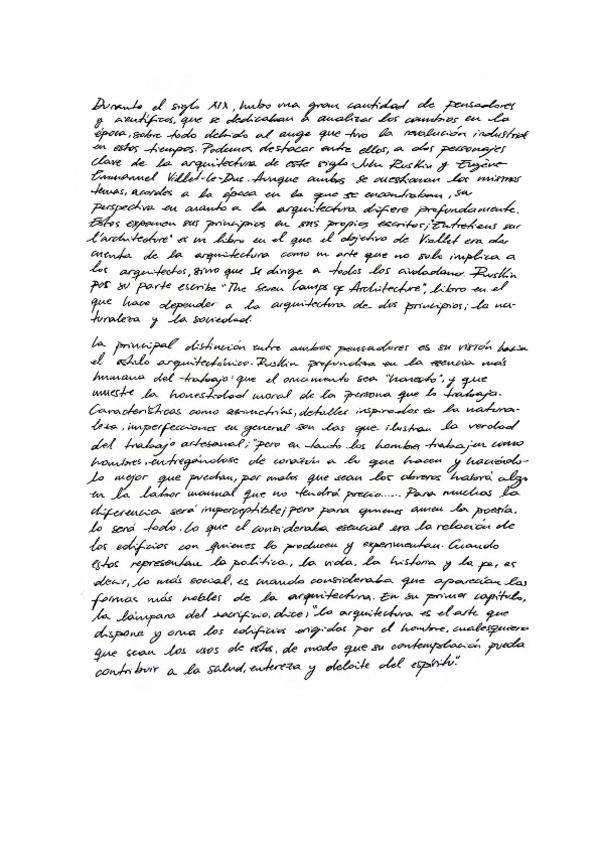 Durante el siglo XIX, hubo una gran cantidad de pensadores
y científicos, que se dedicaban a analizar los cambios en la
época, sobre todo debido al auge que tuvo la revolución industrial
en estos tiempos. Podemos destacar entre ellos, a dos personajes
clave de la arquitectura de este siglo John Ruskin y Eugène
Emmanuel Viollet-le-Duc. Aunque ambos se cuestionan los mismos
temas, acordes a la época en la que se encontraban, su
perspectiva en cuanto a la arquitectura difiere profundamente.
Estos exponen sus principios en sus propios escritos; "Entretiens sur
l'architecture" es un libro en el que el objetivo de Viollet era dar
cuenta de la arquitectura como un arte que no solo implica a
los arquitectos, sino que se dirige a todos los ciudadanos. Ruskin
por su parte escribe "The Seven Lamps of Architecture", libro en el
que hace depender a la arquitectura de dos principios; la na-
turaleza y la sociedad.
La principal distinción entre ambos pensadores es su visión hacia
el estilo arquitectónico. Ruskin profundiza en la esencia más
humana del trabajo: que el ornamento sea "honesto", y que
muestre la honestidad moral de la persona que lo trabaja.
Características como asimetrías, detalles inspirados en la natura-
leza, imperfecciones en general son las que ilustran la verdad
del trabajo artesanal; "pero en tanto los hombres trabajen como
hombres, entregándose de corazón a lo que hacen y haciéndo-
lo mejor que puedan, por malos que sean los obreros habrá algo
en la labor manual que no tendrá precio..... Para muchos la
diferencia será imperceptible; pero para quienes amen la poesía,
lo será todo. Lo que el consideraba esencial era la relación de
los edificios con quienes lo producen y experimentan. Cuando
estos representan la política, la vida, la historia y la fe, es
decir, lo más social, es cuando consideraba que aparecían las
formas más nobles de la arquitectura. En su primer capítulo,
la lámpara del sacrificio, dice; "la arquitectura es el arte que
dispone y orna los edificios erigidos por el hombre, cualesquiera
que sean los usos de estos, de modo que su contemplación pueda
contribuir a la salud, entereza y deleite del espíritu".